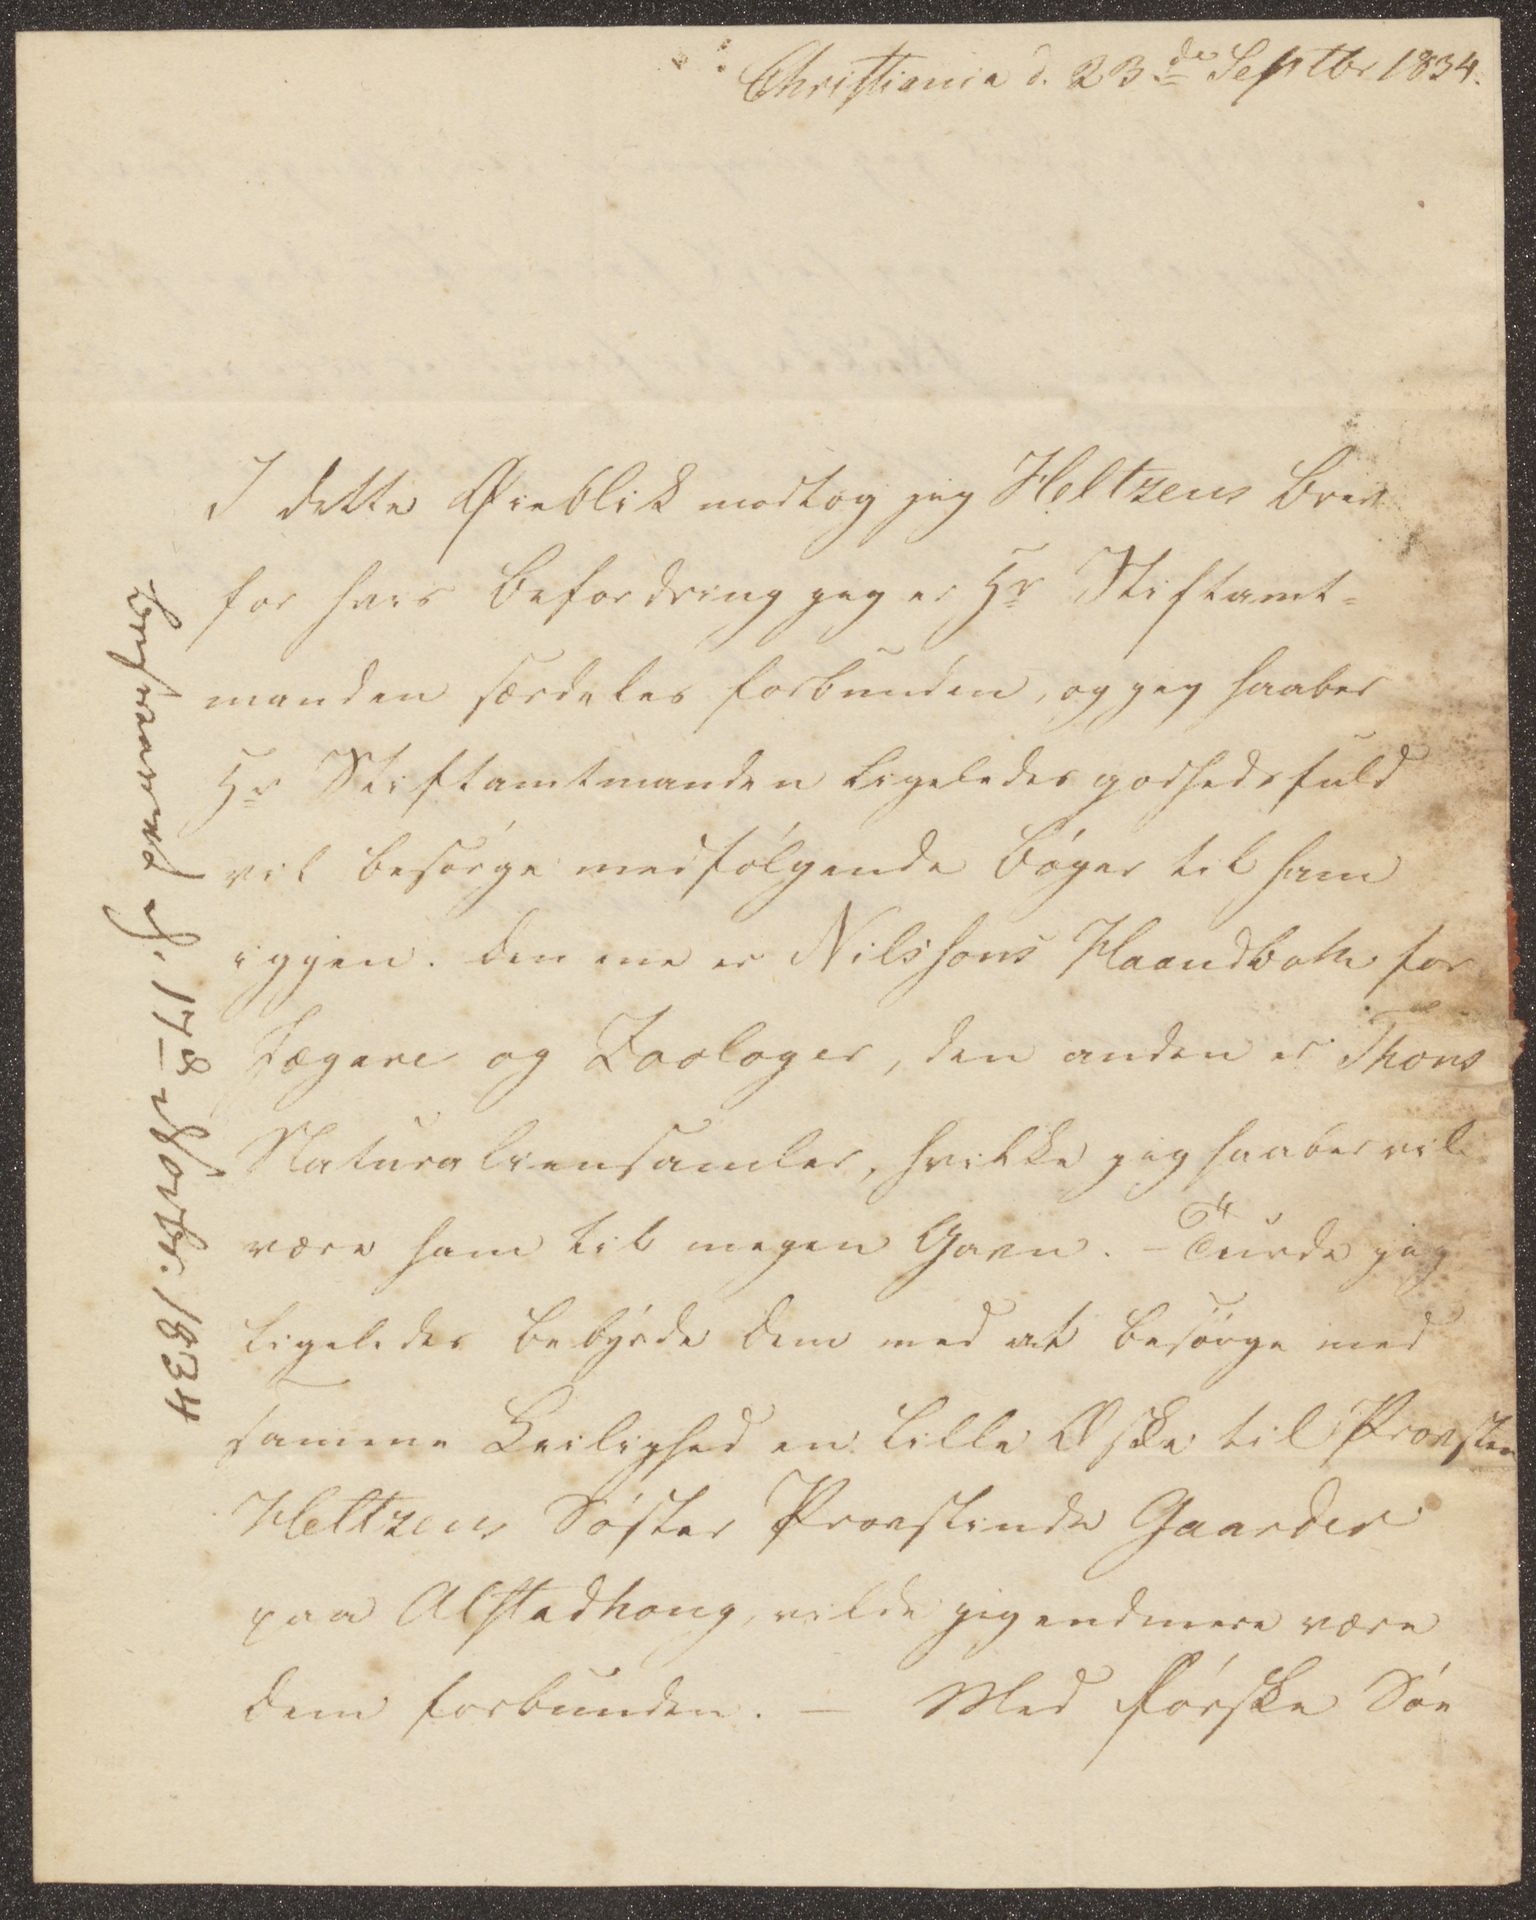 Christiania d. 23de Septbr 1834.
I dette Øieblik modtog jeg Heltzens Brev
for hvis Befordring jeg er Hr Stiftamt-
manden særdeles forbunden, og jeg haaber
Hr Stiftamtmanden ligeledes godhedsfuld
vil besørge medfølgende Bøger til ham
igjen. Den ene er Nilssons Haandbok for
Jægare og Zoologer, den anden er Thons
Naturaliensamler, hvilke jeg haaber vil
være ham til megen Gavn. – Turde jeg
ligeledes bebyrde Dem med at besørge med
samme Leilighed en lille Æske til Provsten
Heltzens Søster Provstinde Gaarder
paa Alstadhoug, vilde jeg endmere være
Dem forbunden. – Med første Søe
d. 17–8 Novbr. 1834